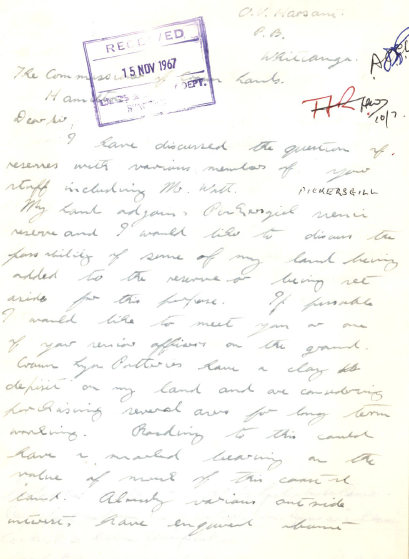 P.B.
Whitianga.
The Commissioner of Crown Lands.
RECEIVED
15 NOV 1967
DEPT.
Dear Sir,
I have discussed the question of
reserves with various members of your
staff including Mr. Watt.
PICKERSGILL
My land adjoins Pickersgill scenic
reserve and I would like to discuss the
possibility of some of my land being
added to the reserve or being set
aside for this purpose. If possible
I would like to meet you or one
of your senior officers on the ground.
Crown Lynn Potteries have a clay
deposit on my land and are considering
purchasing several acres for long term
working. Roading to this could
have a marked bearing on the
value of much of this coastal
land. Already various outside
interests have enquired about